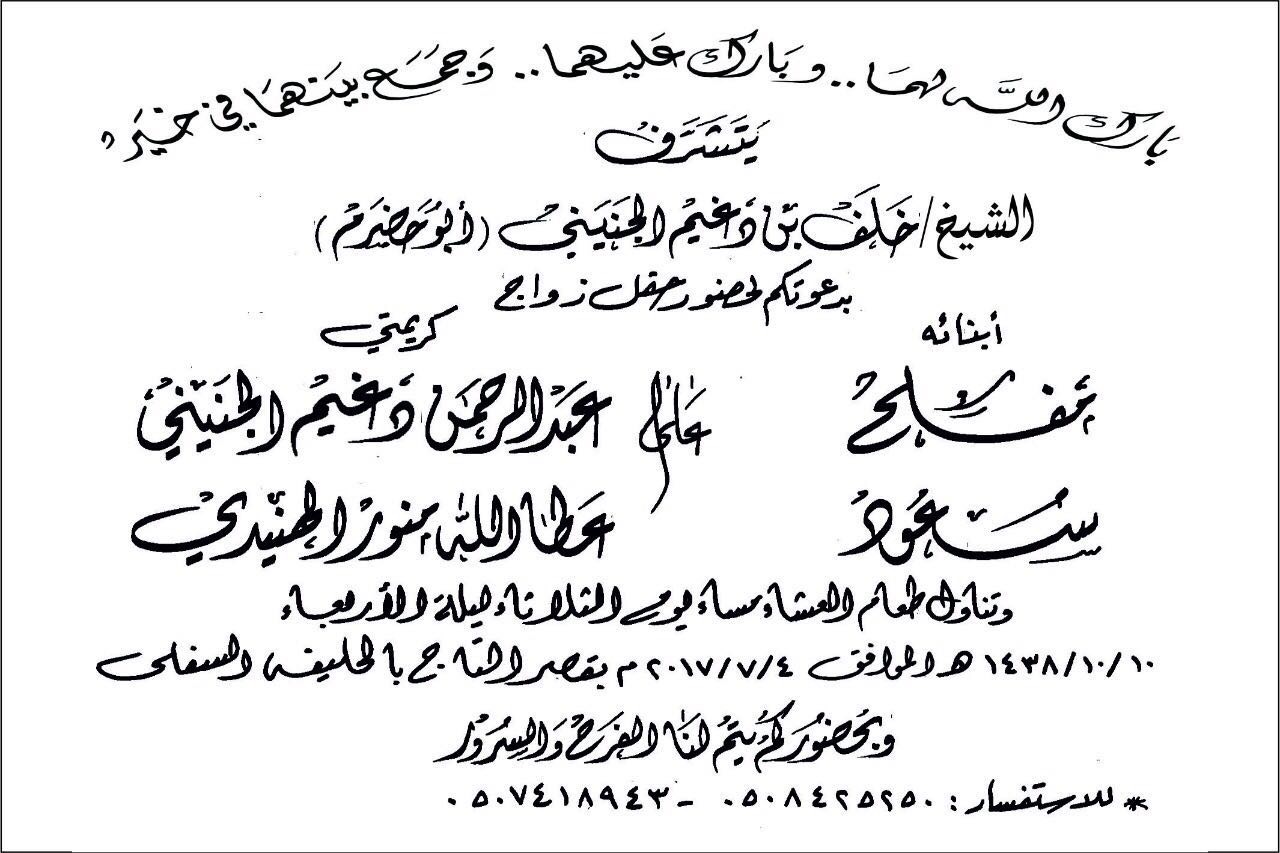 بارك الله لهما.. وبارك عليهما.. وجمع بينهما في خير
يتشرف
الشيخ/خلف بن دغيم الجنيني (أبو حضيرم)
بدعوتكم لحضور حفل زواج
أبنائه كريمتي
مفلح على عبدالرحمن دغيم الجنيني
سعود عطا الله منور الهنيدي
وتناول طعام العشاء مساء يوم الثلاثاء ليلة الأربعاء
١٤٣٨/١٠/١٠ هـ الموافق ٢٠١٧/٧/٤ م بقصر التاج بالحليفه السفلى
وبحضوركم يتم لنا الفرح والسرور
* للاستفسار: ٠٥٠٨٤٢٥٢٥٠ - ٠٥٠٧٤١٨٩٤٣